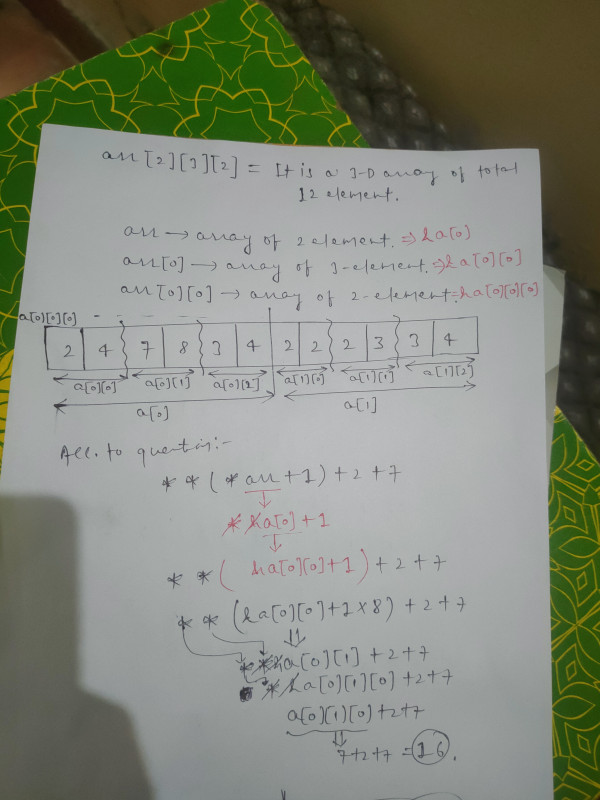 arr[2][3][2] = It is a 3-D array of total
12 element.
arr → array of 2 element. ⇒ &a[0]
arr[0] → array of 3-element. ⇒ &a[0][0]
arr[0][0] → array of 2-element ⇒ &a[0][0][0]
a[0][0][0] - - - - -
2 4 7 8 3 4 2 2 2 3 3 4
a[0][0] a[0][1] a[0][2] a[1][0] a[1][1] a[1][2]
a[0] a[1]
Acc. to question:-
* * ( * arr + 1 ) + 2 + 7
* & a[0] + 1
* * ( &a[0][0] + 1 ) + 2 + 7
* * ( &a[0][0] + 1 × 8 ) + 2 + 7
* * & a[0][1] + 2 + 7
* & a[0][1][0] + 2 + 7
a[0][1][0] + 2 + 7
7 + 2 + 7 = 16.